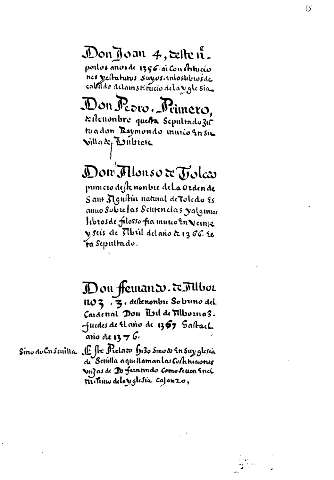 Don Joan 4, deste n.
por los años de 1356. ai Constitucio
nes y estatutos suyos en los libros de
cabildo del institucio de la yglesia
Don Pedro. Primero,
deste nonbre questa Sepultado Jū
tu a don Raymondo murio En su
villa de
Don Alonso de Toledo
primero deste nonbre de La Orden de
Sant Agustin natural de Toledo Es
criuio Sobre Las Sentencias y algunos
libros de filosofia murio En Veinte
y seis de Abril del año de 1366. Es
ta Sepultado.
Don ffernando. de Albor
noz. 3. deste nonbre Sobrino del
Cardenal Don Gil de Albornoz.
fue desde El año de 1367 hasta el
año de 1376.
Sinodo En Sevilla. Este Prelado hizo Sinodo En Su yglesia
de Sevilla a que llaman Las Costituciones
viejas de Do fernando Como Se ve En el
de la yglesia